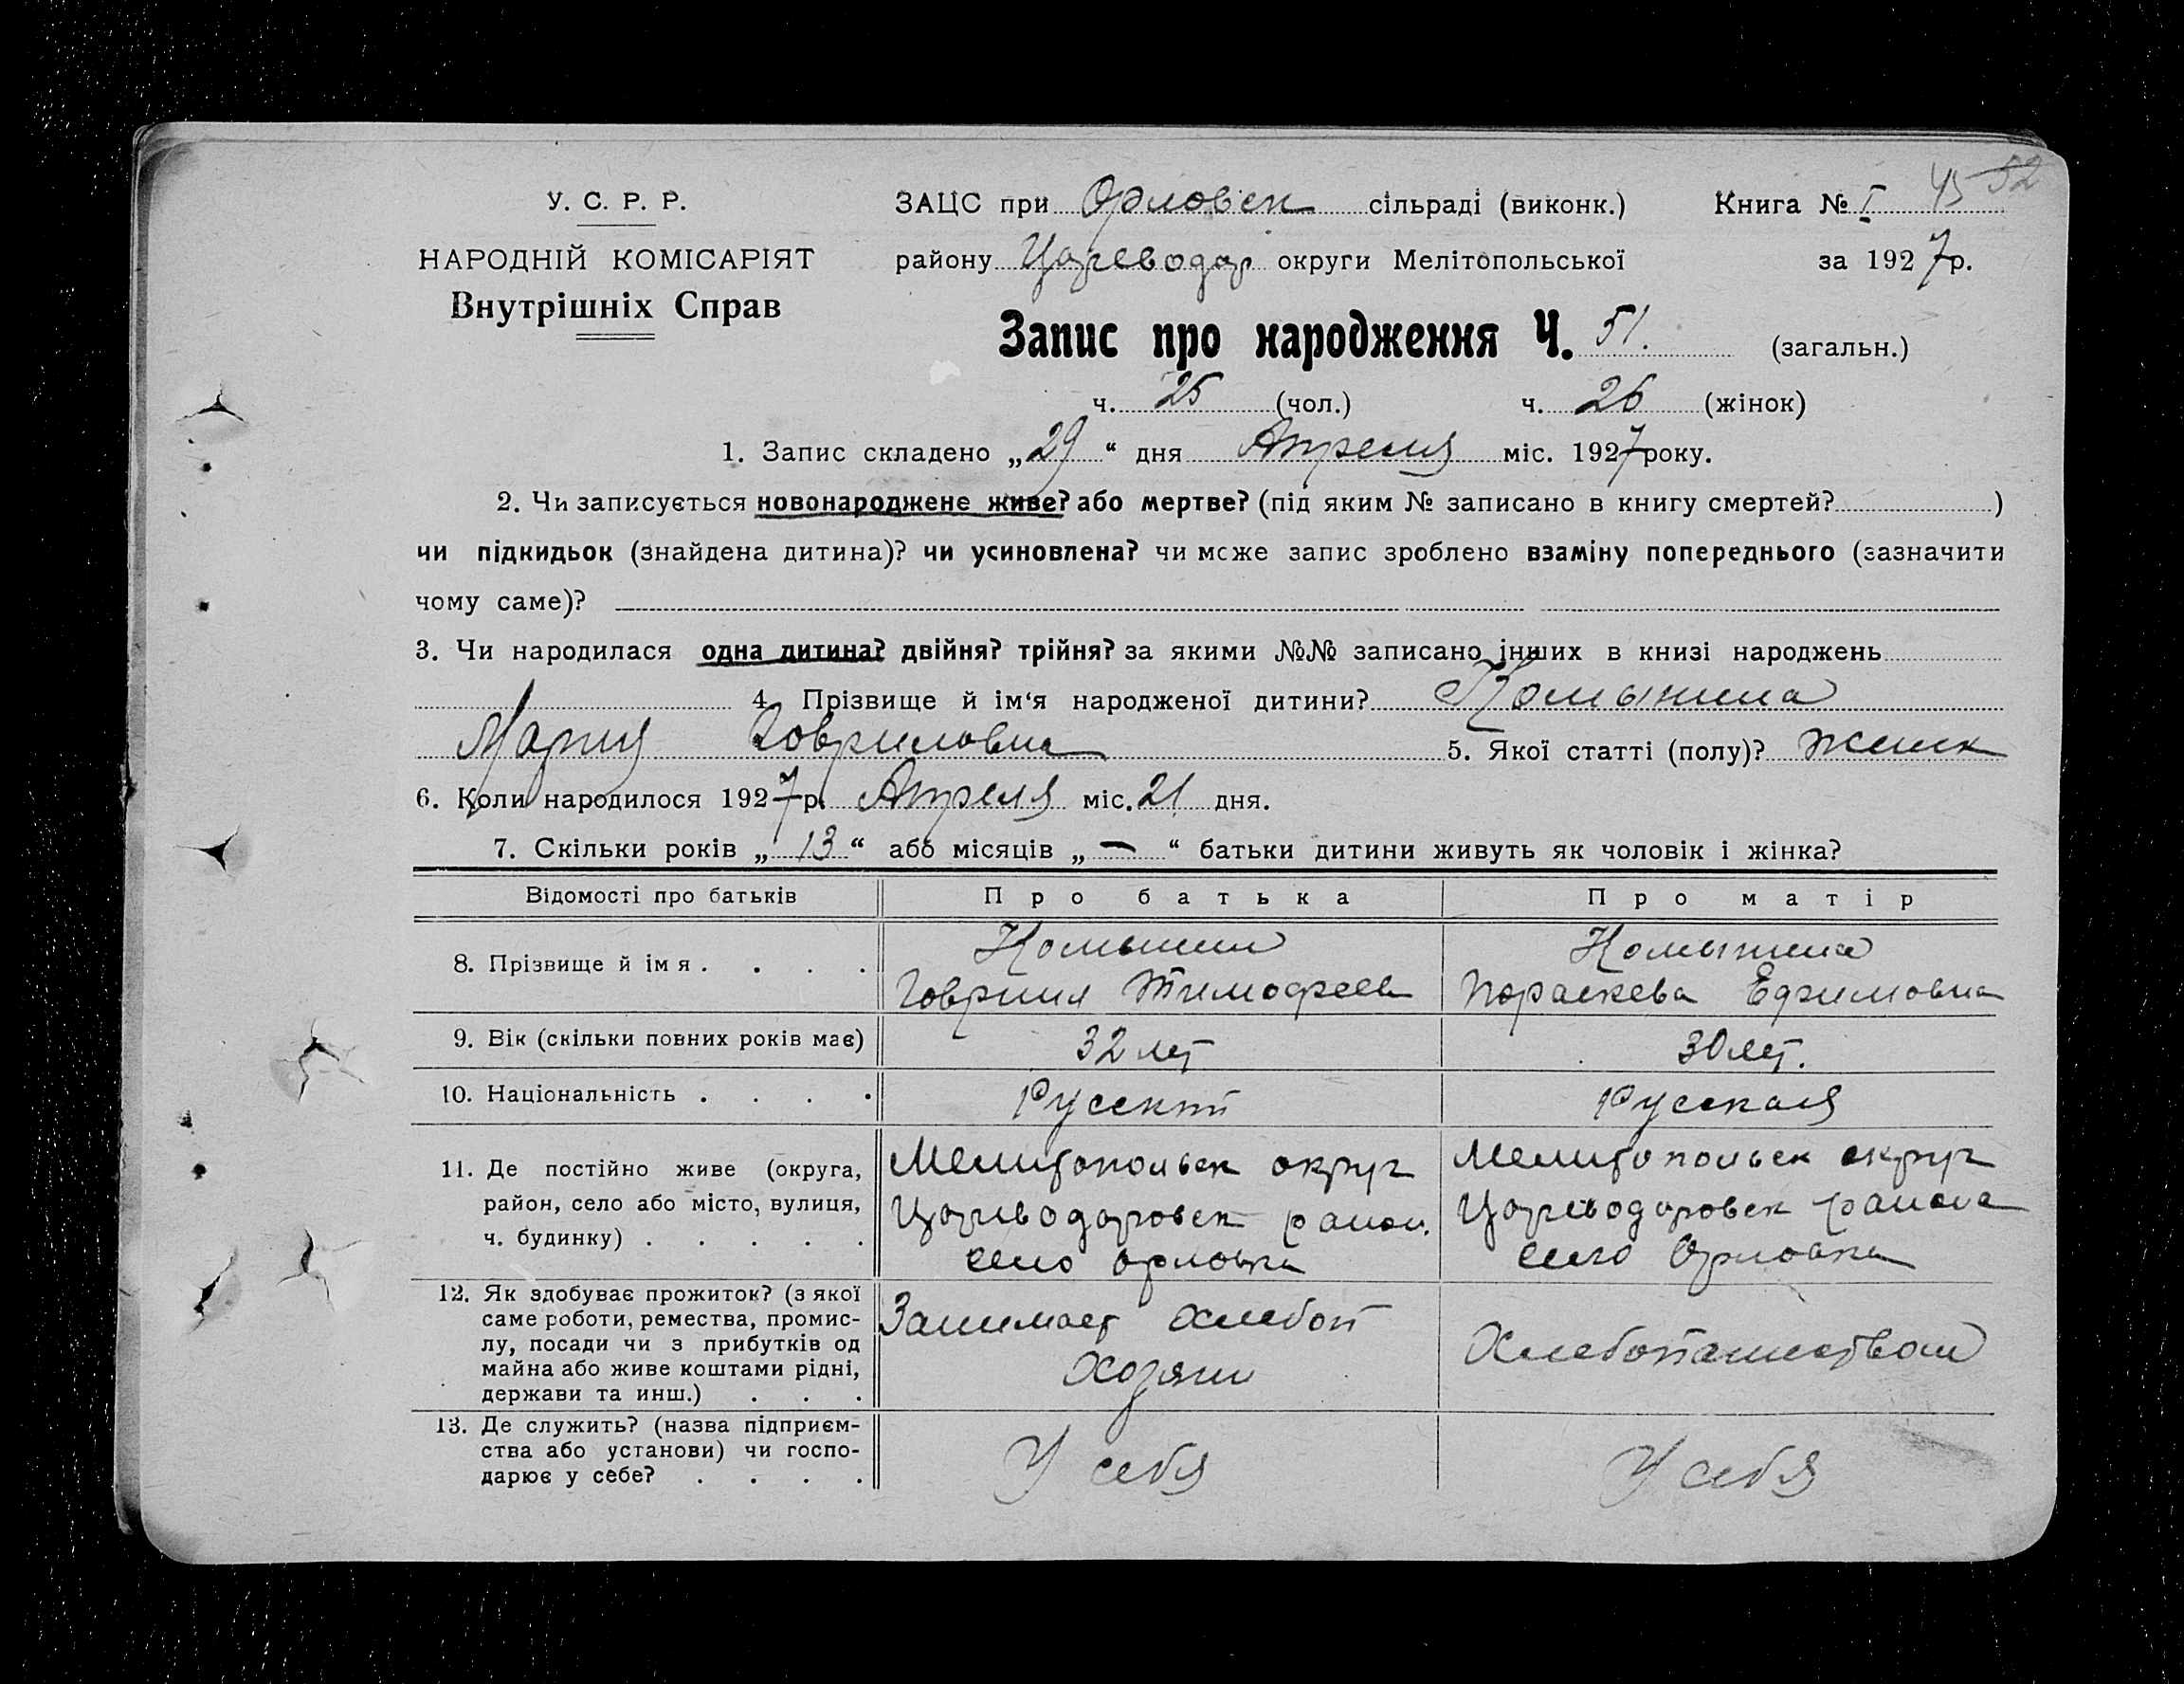 45 52
У. С. Р. Р.
ЗАЦС при Орловск сільраді (виконк.) Книга № I
НАРОДНІЙ КОМІСАРІЯТ
району Цареводар округи Мелітопольської за 1927р.
Внутрішніх Справ
Запис про народження Ч. 51. (загальн.)
ч. 25 (чол.) ч. 26 (жінок)
1. Запис складено „29“ дня Апреля міс. 1927року.
2. Чи записується новонароджене живе? або мертве? (під яким № записано в книгу смертей? )
чи підкидьок (знайдена дитина)? чи усиновлена? чи може запис зроблено взаміну попереднього (зазначити
чому саме)?
3. Чи народилася одна дитина? двійня? трійня? за якими №№ записано інших в книзі народжень
4. Прізвище й ім‘я народженої дитини? Комынина
Мария Говриловна 5. Якої статті (полу)? женск
6. Коли народилося 1927р. Апреля міс. 21 дня.
7. Скільки років „13“ або місяців „—“ батьки дитини живуть як чоловік і жінка?
Відомості про батьків Про батька Про матір
8. Прізвище й імя . . . . Комынин Комынина
Говриил Тимофеев Параскева Ефимовна
9. Вік (скільки повних років має) 32 лет 30 лет.
10. Національність . . . . Русский Русская
11. Де постійно живе (округа, Мелитопольск округ Мелитопольск округ
район, село або місто, вулиця, Цареводаровск район. Цареводаровск района
ч. будинку) . . . . . село Орловка село Орловка
12. Як здобуває прожиток? (з якої
саме роботи, ремества, промис- Занимает хлебоп
лу, посади чи з прибутків од Хлебопашеством
майна або живе коштами рідні, Хозяин
держави та инш.) . . .
13. Де служить? (назва підприєм-
ства або установи) чи госпо- У себя У себя
дарює у себе? . . . .